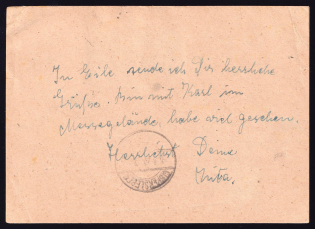 In Eile sende ich Dir herzliche
Grüße. Bin mit Karl im
Messegelände, habe viel gesehen.
Herzlichst Deine